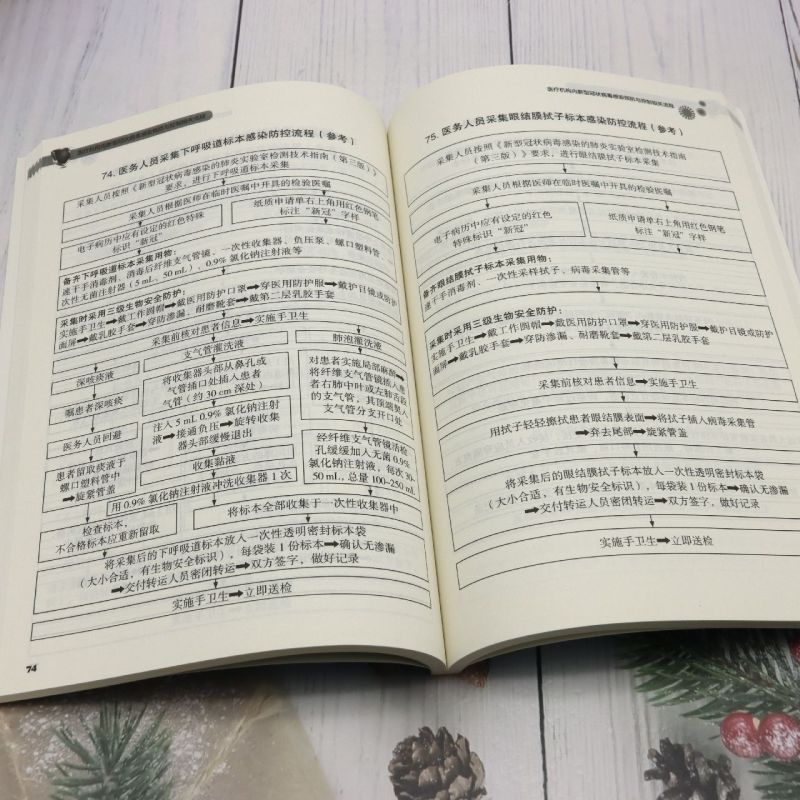 74. 医务人员采集下呼吸道标本感染防控流程（参考）
采集人员按照《新型冠状病毒感染的肺炎实验室检测技术指南（第三版）》
要求，进行下呼吸道标本采集
采集人员根据医师在临时医嘱中开具的检验医嘱
电子病历中应有设定的红色特殊
标识“新冠”
纸质申请单右上角用红色钢笔
标注“新冠”字样
备齐下呼吸道标本采集用物：
速干手消毒剂、消毒后纤维支气管镜、一次性收集器、负压泵、螺口塑料管
次性无菌注射器（5 mL、50 mL）、0.9% 氯化钠注射液等
采集时采用三级生物安全防护：
实施手卫生➡戴工作圆帽➡戴医用防护口罩➡穿医用防护服➡戴护目镜或防护
面屏➡戴乳胶手套➡穿防渗漏、耐磨靴套➡戴第二层乳胶手套
采集前核对患者信息➡实施手卫生
深咳痰液
嘱患者深咳痰
医务人员回避
患者留取痰液于
螺口塑料管中
➡旋紧管盖
检查标本，
不合格标本应重新留取
支气管灌洗液
将收集器头部从鼻孔或
气管插口处插入患者
气管（约 30 cm 深处）
注入 5 mL 0.9% 氯化钠注射
液➡接通负压➡旋转收集
器头部缓慢退出
收集黏液
用 0.9% 氯化钠注射液冲洗收集器 1 次
肺泡灌洗液
对患者实施局部麻醉➡
将纤维支气管镜插入患
者右肺中叶或左肺舌段
的支气管，其顶端契入
支气管分支开口处
经纤维支气管镜活检
孔缓缓加入无菌 0.9%
氯化钠注射液，每次 30~
50 mL，总量 100~250 mL
将标本全部收集于一次性收集器中
将采集后的下呼吸道标本放入一次性透明密封标本袋
（大小合适，有生物安全标识），每袋装 1 份标本➡确认无渗漏
➡交付转运人员密闭转运➡双方签字，做好记录
实施手卫生➡立即送检
74
医疗机构内新型冠状病毒感染预防与控制相关流程
75. 医务人员采集眼结膜拭子标本感染防控流程（参考）
采集人员按照《新型冠状病毒感染的肺炎实验室检测技术指南
（第三版）》要求，进行眼结膜拭子标本采集
采集人员根据医师在临时医嘱中开具的检验医嘱
电子病历中应有设定的红色
特殊标识“新冠”
纸质申请单右上角用红色钢笔
标注“新冠”字样
备齐眼结膜拭子标本采集用物：
速干手消毒剂、一次性采样拭子、病毒采集管等
采集时采用三级生物安全防护：
实施手卫生➡戴工作圆帽➡戴医用防护口罩➡穿医用防护服➡戴护目镜或防护
面屏➡戴乳胶手套➡穿防渗漏、耐磨靴套➡戴第二层乳胶手套
采集前核对患者信息➡实施手卫生
用拭子轻轻擦拭患者眼结膜表面➡将拭子插入病毒采集管
➡弃去尾部➡旋紧管盖
将采集后的眼结膜拭子标本放入一次性透明密封标本袋
（大小合适，有生物安全标识），每袋装 1 份标本➡确认无渗漏
➡交付转运人员密闭转运➡双方签字，做好记录
实施手卫生➡立即送检